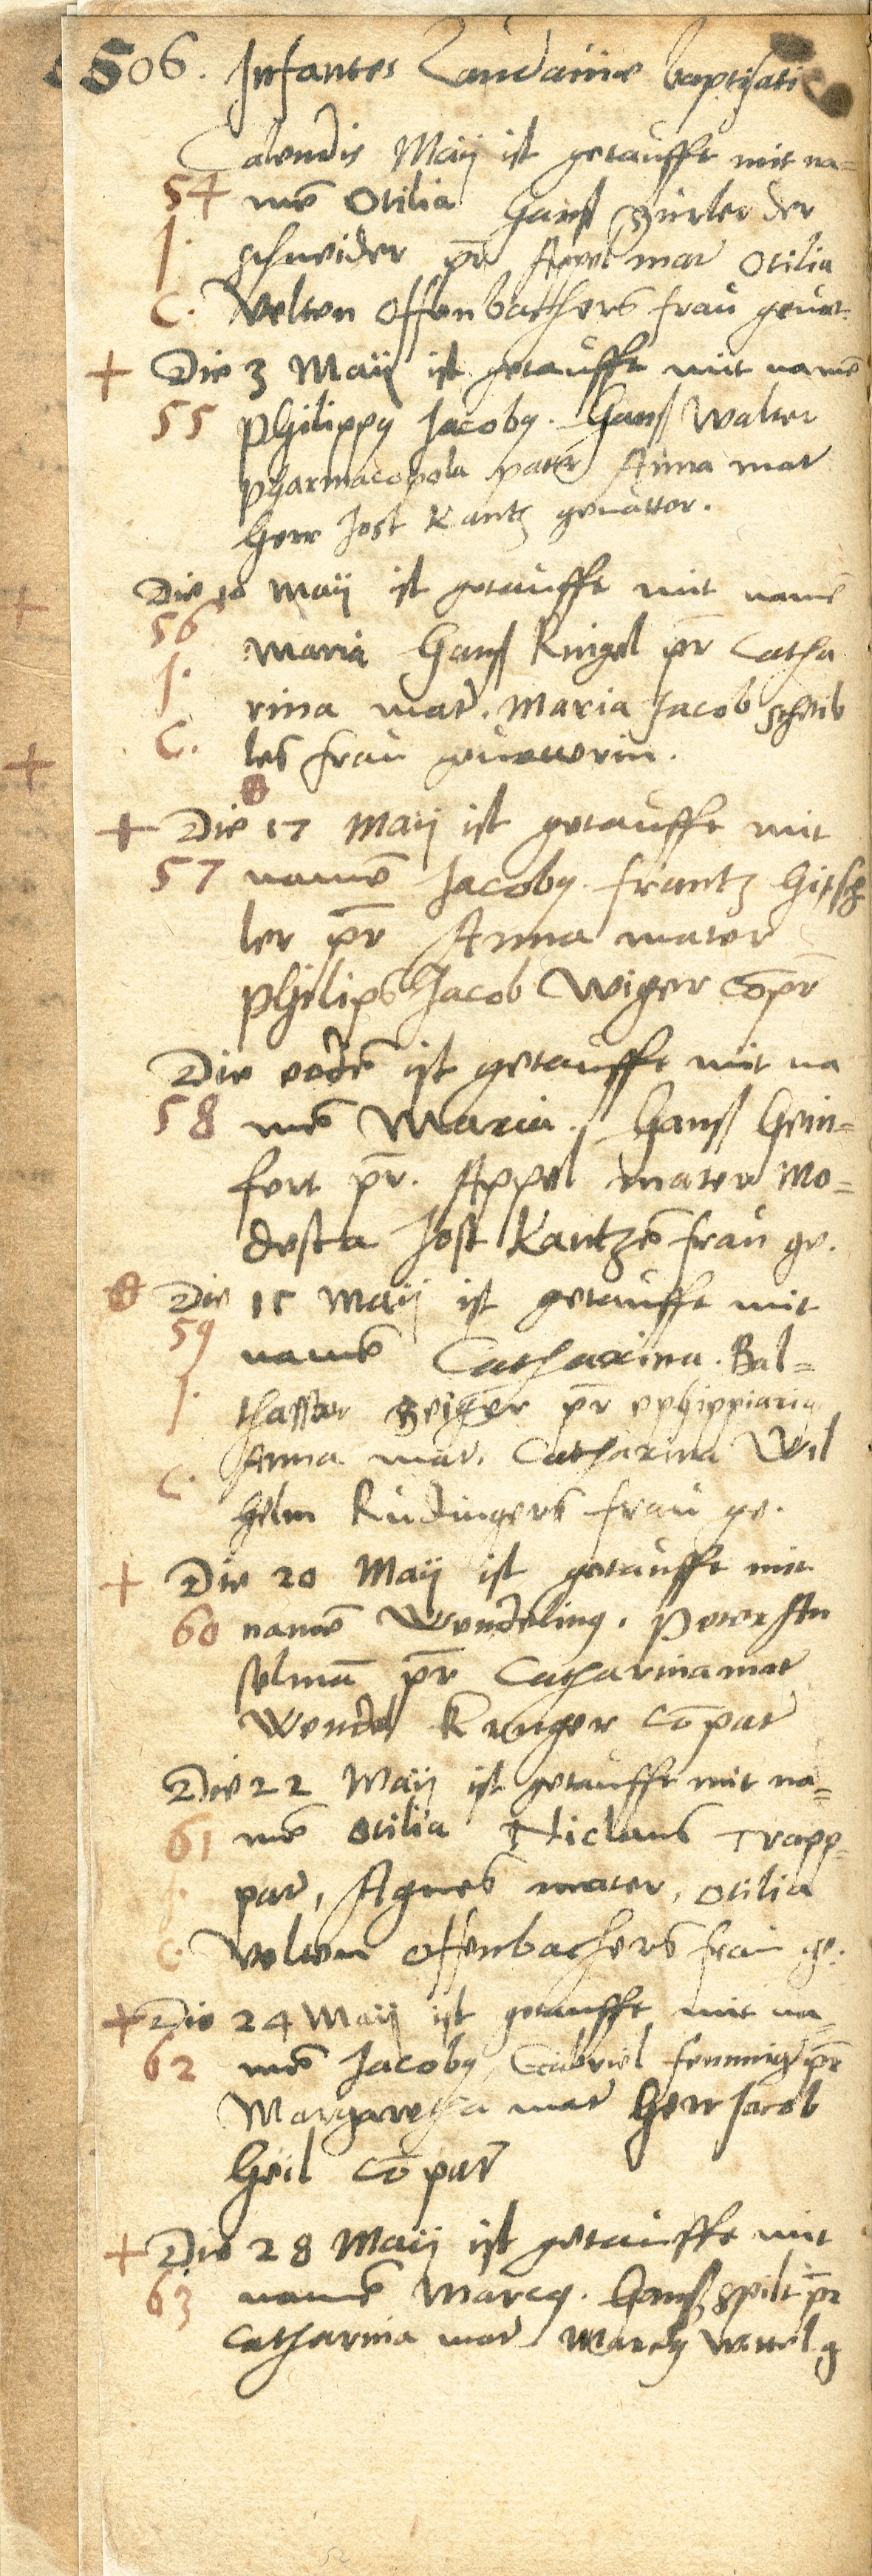 506. Infantes Landauiae baptisati
Calendis Maij ist getaufft mit na=
54 mē Otilia Hanß Zürler der
J. schneider pr̄ Appel mat̄ Otilia
C. Velten Offenbachers frau geuat.
+ Die 3 Maij ist getaufft mit namē
55 Philippy Jacoby. Hanß Walter
pharmacopola pater Anna mat̄
Herr Jost Kantz geuatter.
+ Die 10 Maij ist getaufft mit namē
56 Maria Hanß Kuigel pr̄ Catha
J. rina mat̄. Maria Jacob Scheib
C. les frau geuatterin.
+
+ Die 17 Maij ist getaufft mit
57 namē Jacoby. frantz Hitsch
ler pr̄ Anna mater
Philips Jacob Wiger cōpr̄
Die eodē ist getaufft mit na
58 mē Maria. Hanß Hein=
fort pr̄. Appel mater Mo=
desta Jost Kantzē frau ge.
Die 15 Maij ist getaufft mit
59 namē Catharina. Bal=
J. thassar Zeiger pr̄ ephippiarig
C. Anna mat̄. Catharina Wil
helm Rudingers frau ge.
+ Die 20 Maij ist getaufft mit
60 namē Wendeling. Peter
selmā pr̄ Catharina mat̄
Wendel Kruger cōpat̄
Die 22 Maij ist getaufft mit na=
61 mē Otilia Niclaus Trapp
J. pat̄, Agnes mater, Otilia
C. Velten Offenbachers frau ge.
+ Die 24 Maij ist getaufft mit na=
62 mē Jacoby, Gabriel fenniig pr̄
Margaretha mat̄ Herr Jacob
Heil cōpat̄
+ Die 28 Maij ist getaufft mit
63 namē Marcy. Hanß Spilt pr̄
Catharina mat̄ Marcy